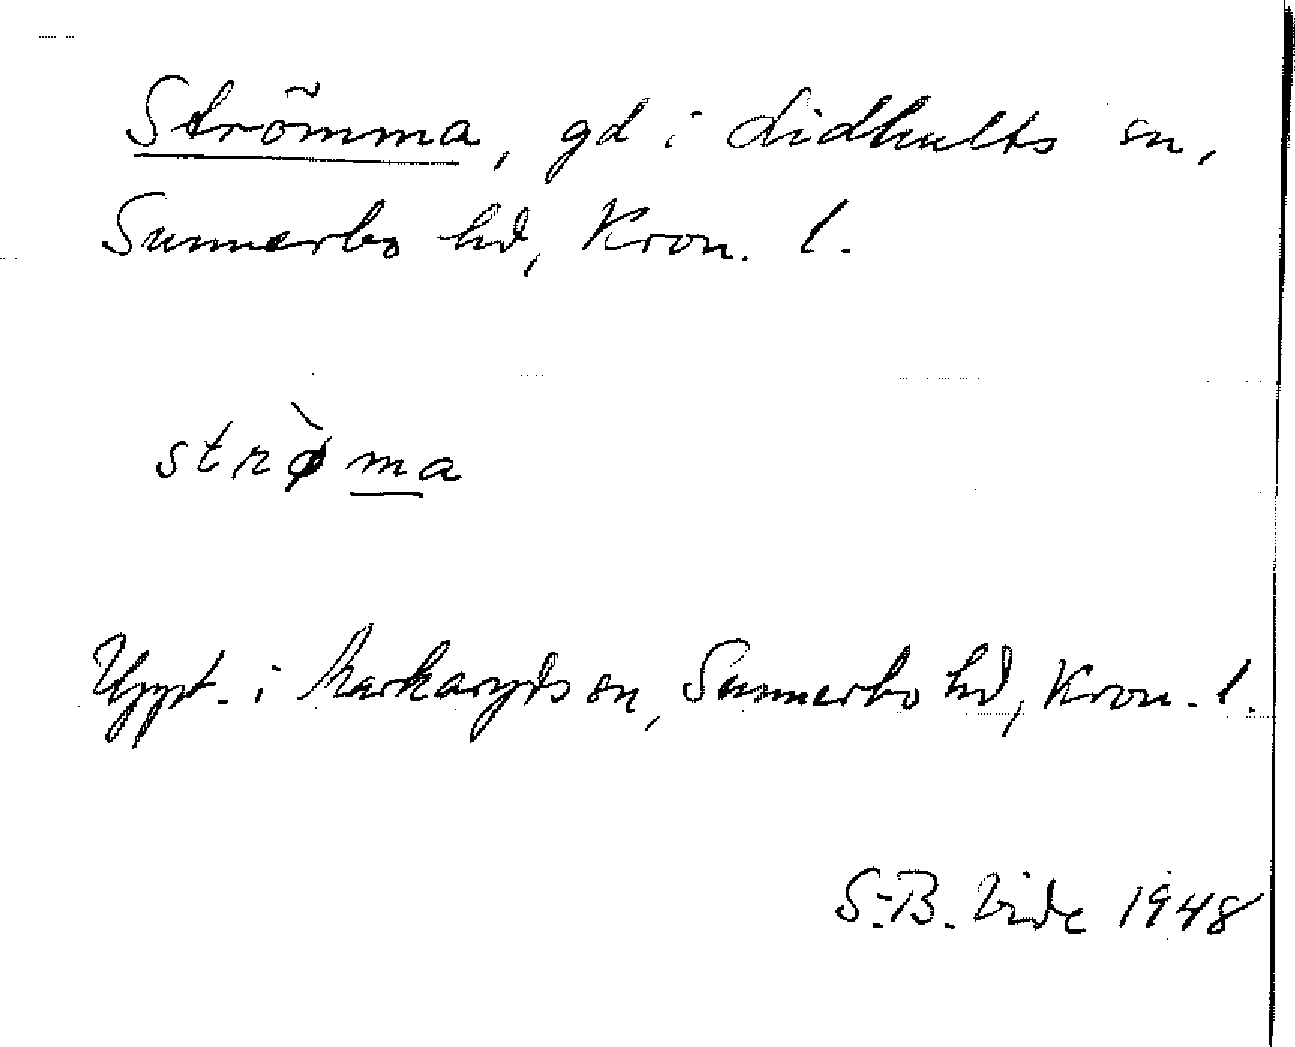 Strömma, gd i Lidhults sn,
Sunnerbo hd, Kron. l.
strø̀ma
Uppt. i Markaryds sn, Sunnerbo hd, Kron. l.
S.-B. Vide 1948